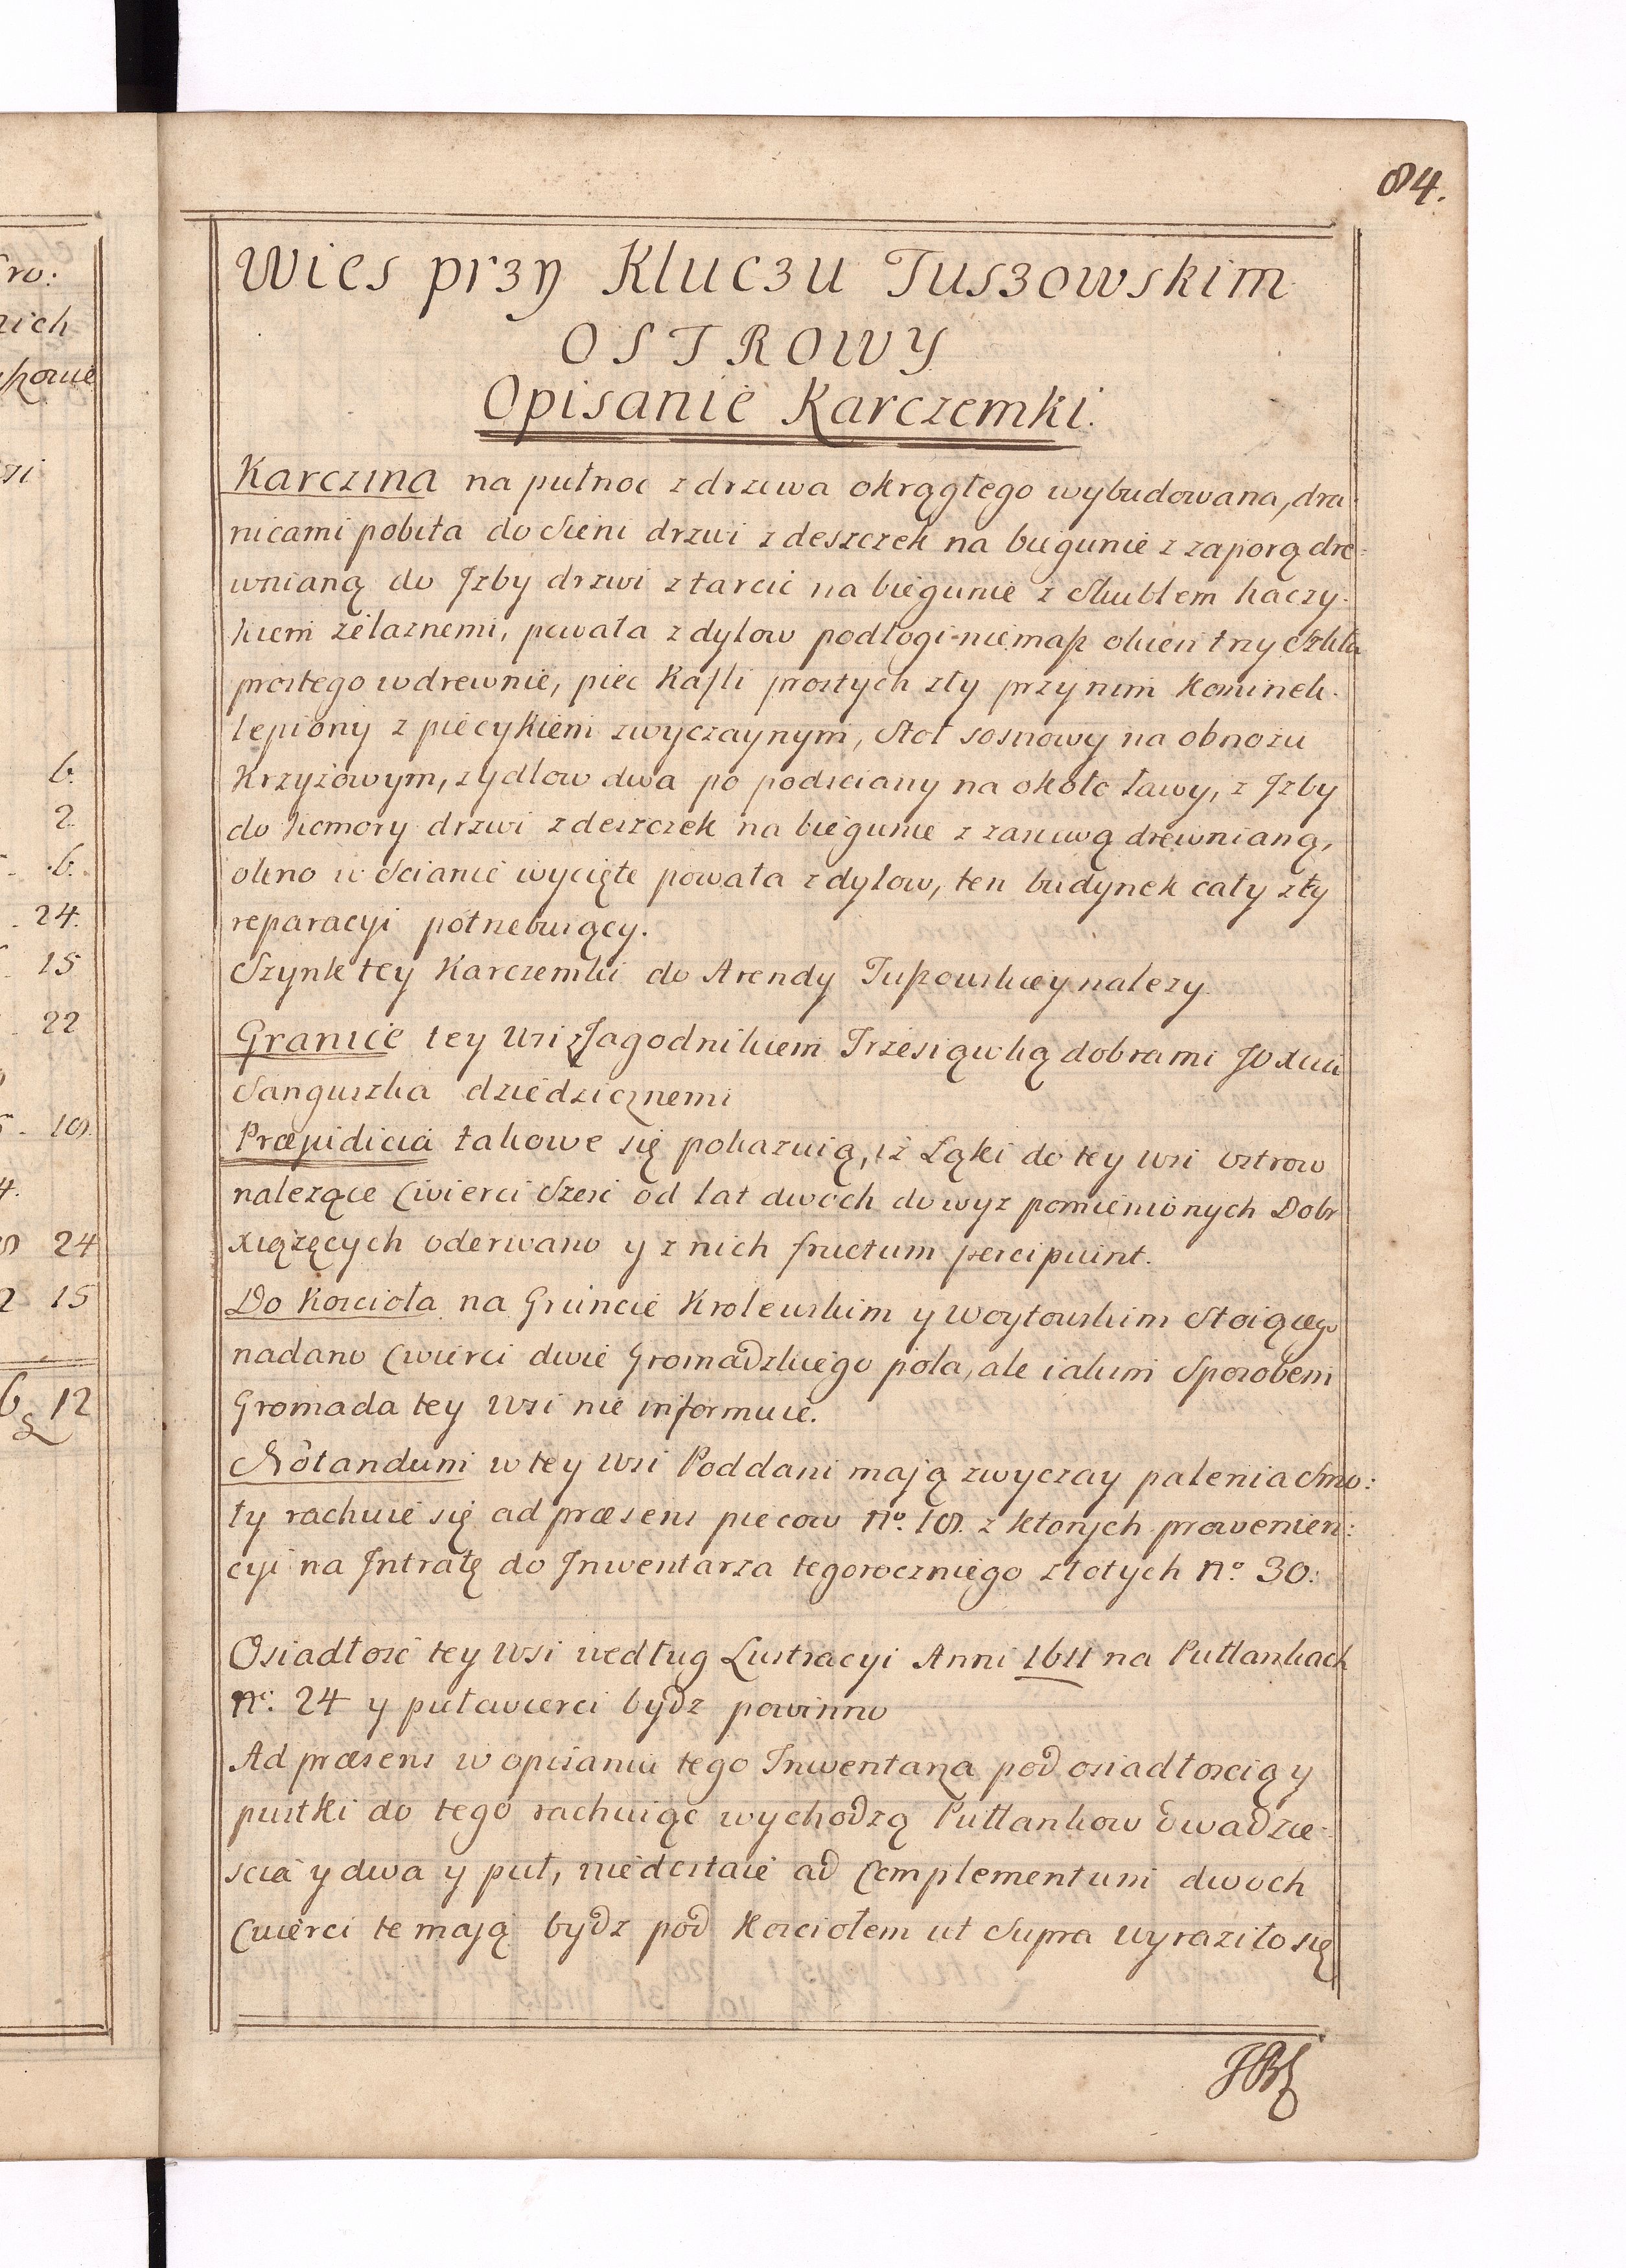 84.
Wies przy Kluczu Tuszowskim
OSTROWY
Opisanie Karczemki.
Karczma na pułnoc z drzewa okrągłego wybudowana, dra:
nicami pobita do Sieni drzwi z deszczek na biegunie z zaporą dre:
wnianą do Jzby drzwi z tarcic na biegunie z Skublem haczy-
kiem żelaznemi, powała z dylow podłogi niemasz okien trzy Szkła
prostego w drewnie, piec Kafli prostych zły przynim Kominek
lepiony z piecykiem zwyczaynym, Stoł sosnowy na obnożu
Krzyżowym, zydlow dwa po podsciany na około ławy, z Jzby
do komory drzwi z deszczek na biegunie z zasuwą drewnianą,
okno w Scianie wycięte powała z dylow, ten budynek cały zły
reparacyi potrzebuiący.
Szynk tey Karczemki do Arendy Tuszowskiey nalezy
Granice tey Wsi z Jagodnikiem Trzesiąwką dobrami JO Xcia
Sanguszka dziedzicznemi
Præjudicia takowe się pokazuią, iż Ląki do tey wsi Ostrow
należące Cwierci Szesc od lat dwoch do wyz pomienionych Dobr
xiążęcych oderwano y z nich fructum percipuint.
Do Koscioła na Gruncie Krolewskim y Woytowskim Stoiącego
nadano Cwierci dwie Gromadzkiego pola, ale iakim Sposobem
Gromada tey Wsi nie informuie.
Notandum w tey Wsi Poddani mają zwyczay palenia Smo:
ły rachuie się ad præsens piecow No. 10. z ktorych prowenien:
cyi na Jntratę do Jnwentarza tegorocznego złotych No. 30:
Osiadłosc tey Wsi według Lustracyi Anni 1611 na Pułłankach
No. 24 y pułcwierci bydz powinno
Ad præsens w opisaniu tego Jnwentarza pod osiadłoscią y
pustki do tego rachuiąc wychodzą Pułłankow dwadzie-
scia y dwa y puł, niedostaie ad Complementum dwoch
Cwierci te mają bydz pod Kosciołem ut Supra wyraziło się